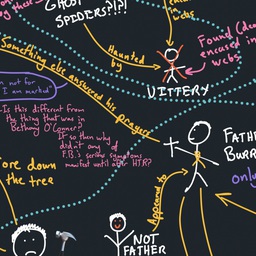 GHOST
SPIDERS?!?!
in webs
Found (dead
encased in
webs
Haunted
by
VITTERY
Something else answered his prayers
not for
I am marked"
Is this different from
the thing that was in
Bethany O'Connor?
If so then why
didn't any of
F.B.'s serious symptoms
manifest until after HTR?
FATHER
BURR
only
ore down
the tree
Appeared to
NOT
FATHER